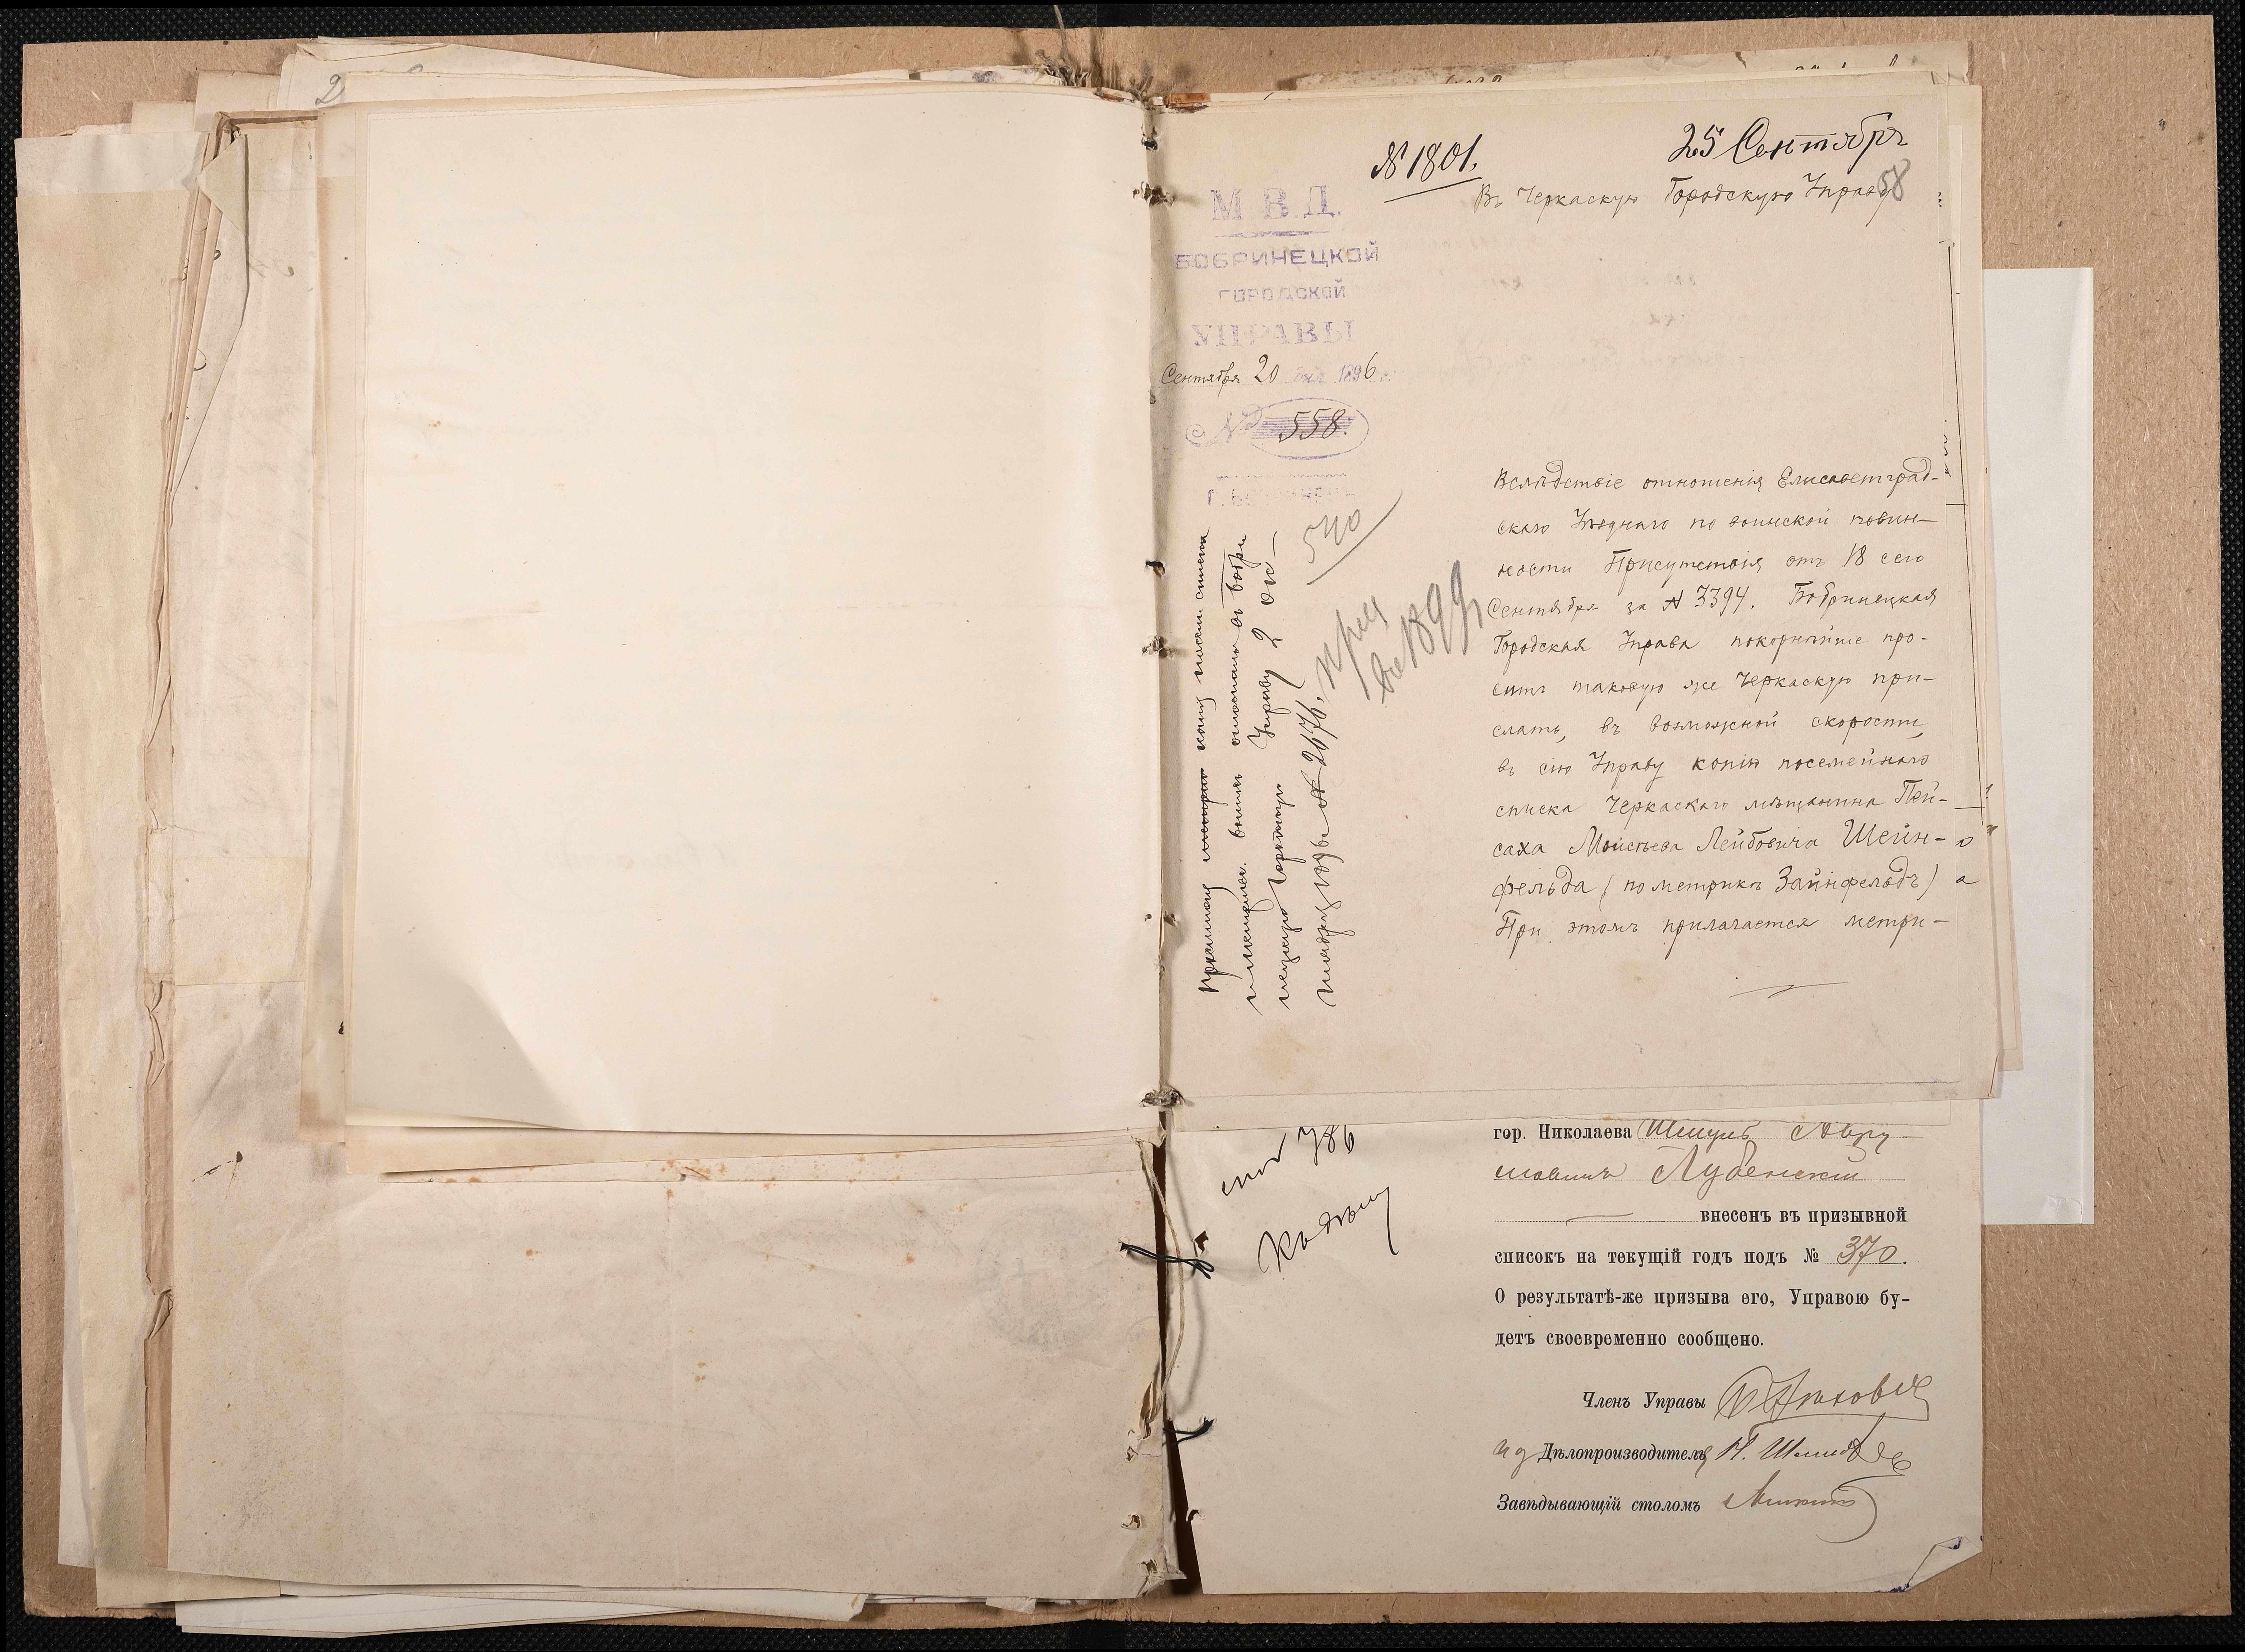 № 1801.
25 Сентября
58
Въ Черкаскую Городскую Управу
М. В. Д.
БОБРИНЕЦКОЙ
ГОРОДСКОЙ
УПРАВЫ
Сентября 20 дня 1896 г.
№ 558.
540
Вслѣдствіе отношенія Елисаветград-
скаго Уѣзднаго по воинской повин-
ности Присутствія отъ 18 сего
Сентября за № 3394. Бобринецкая
Городская Управа покорнѣйше про-
ситъ таковую же Черкаскую при-
слать, въ возможной скорости,
въ сію Управу копію посемейнаго
списка Черкаскаго мѣщанина Пей-
саха Моисѣева Лейбовича Шейн-
фельда (по метрикѣ Зайнфельдъ)
При этомъ прилагается метри-
копію посем списка
Управу 2 ок
№ 2676.
1899
гор. Николаева Шмуль Авру
мовичъ Лубенскій
внесенъ въ призывной
списокъ на текущій годъ подъ № 370.
О результатѣ-же призыва его, Управою бу-
детъ своевременно сообщено.
Членъ Управы
и д Дѣлопроизводителя
Завѣдывающій столомъ